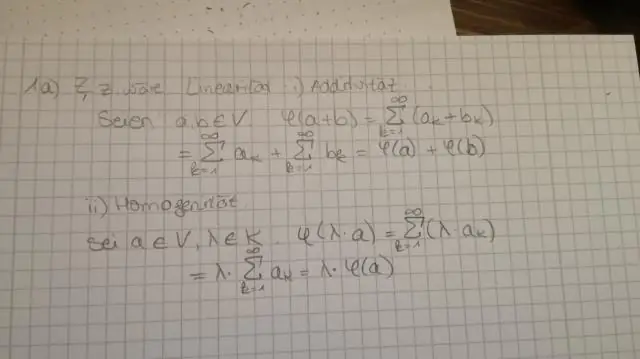 1a) Z, z.wäre Linearität i) Additivität
Seien a,b ∈ V φ(a+b) = ∑_{k=1}^{∞} (a_k + b_k)
= ∑_{k=1}^{∞} a_k + ∑_{k=1}^{∞} b_k = φ(a) + φ(b)
ii) Homogenität
sei a ∈ V, λ ∈ K φ(λ·a) = ∑_{k=1}^{∞} (λ·a_k)
= λ· ∑_{k=1}^{∞} a_k = λ·φ(a)